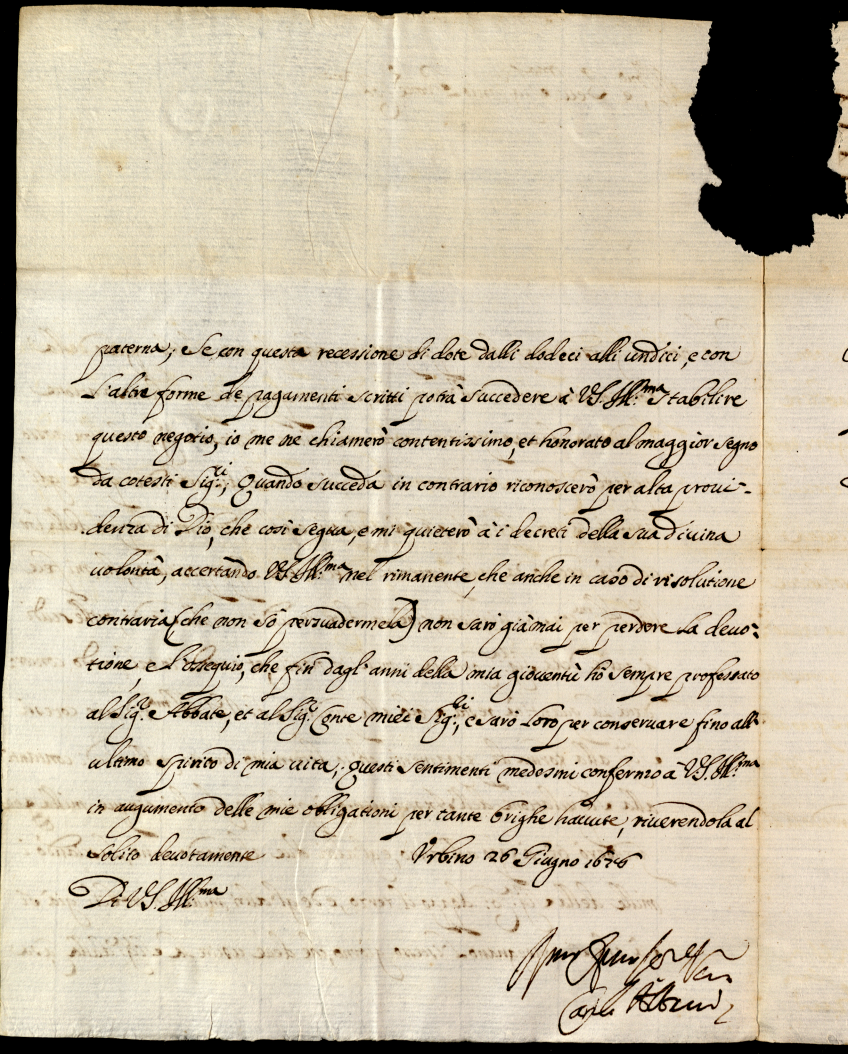 paterna; Se con questa recessione di dote dalli dodeci alli undici, e con
l'altre forme de pagamenti scritti potrà succedere à VS. Ill.ma stabilire
questo negotio, io me ne chiamerò contentissimo, et honorato al maggior segno
da cotesti Sig.ri; Quando succeda in contrario riconoscerò per alta provi-
denza di Dio, che così segua, e mi quieterò à i decreti della sua divina
volontà, accertando VS. Ill.ma nel rimanente, che anche in caso di risolutione
contraria (che non sò persuadermela) non sarò giàmai per perdere la devo:
tione, e l'ossequio, che fin' dagl' anni della mia gioventù hò sempre professato
al Sig.r Abbate, et al Sig.r Conte miei Sig.ri, e sarò loro per conservare fino all'
ultimo spirito di mia vita; questi sentimenti medesmi confermo à VS. Ill.ma
in augumento delle mie obligationi per tante brighe havute, riverendola al
solito devotamente Urbino 26 Giugno 1676
Di VS. Ill.ma
Carlo Albani